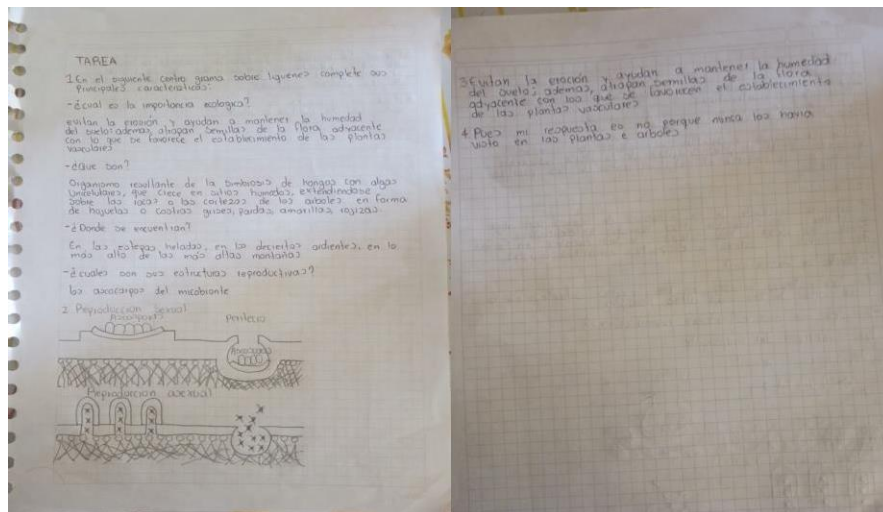 TAREA
1 En el siguiente centro grama sobre liquenes complete sus
Principales caracteristicas:
-¿cual es la importancia ecologica?
evitan la erosión y ayudan a mantener la humedad
del suelo: ademas, atrapan semillas de la flora adyacente
con lo que se favorece el establecimiento de las plantas
vasculares
-¿Que son?
Organismo resultante de la simbiosis de hongos con algas
unicelulares, que crece en sitios humedos, extendiendose
sobre las rocas o las cortezas de los arboles en forma
de hojuelas o costras grises, pardas, amarillas, rojizas.
-¿Donde se encuentran?
En las estepas heladas, en los desiertos ardientes, en lo
más alto de las más altas montañas
-¿cuales son sus estructuras reproductivas?
los ascocarpos del micobionte
2. Reproduccion sexual
Peritecio
Reproduccion asexual
3 Evitan la eroción y ayudan a mantener la humedad
del suelo; ademas, atrapan semillas de la flora
adyacente con los que se favorecen el establecimiento
de las plantas vasculares
4 Pues mi respuesta es no porque nunca los havia
visto en las plantas e arboles